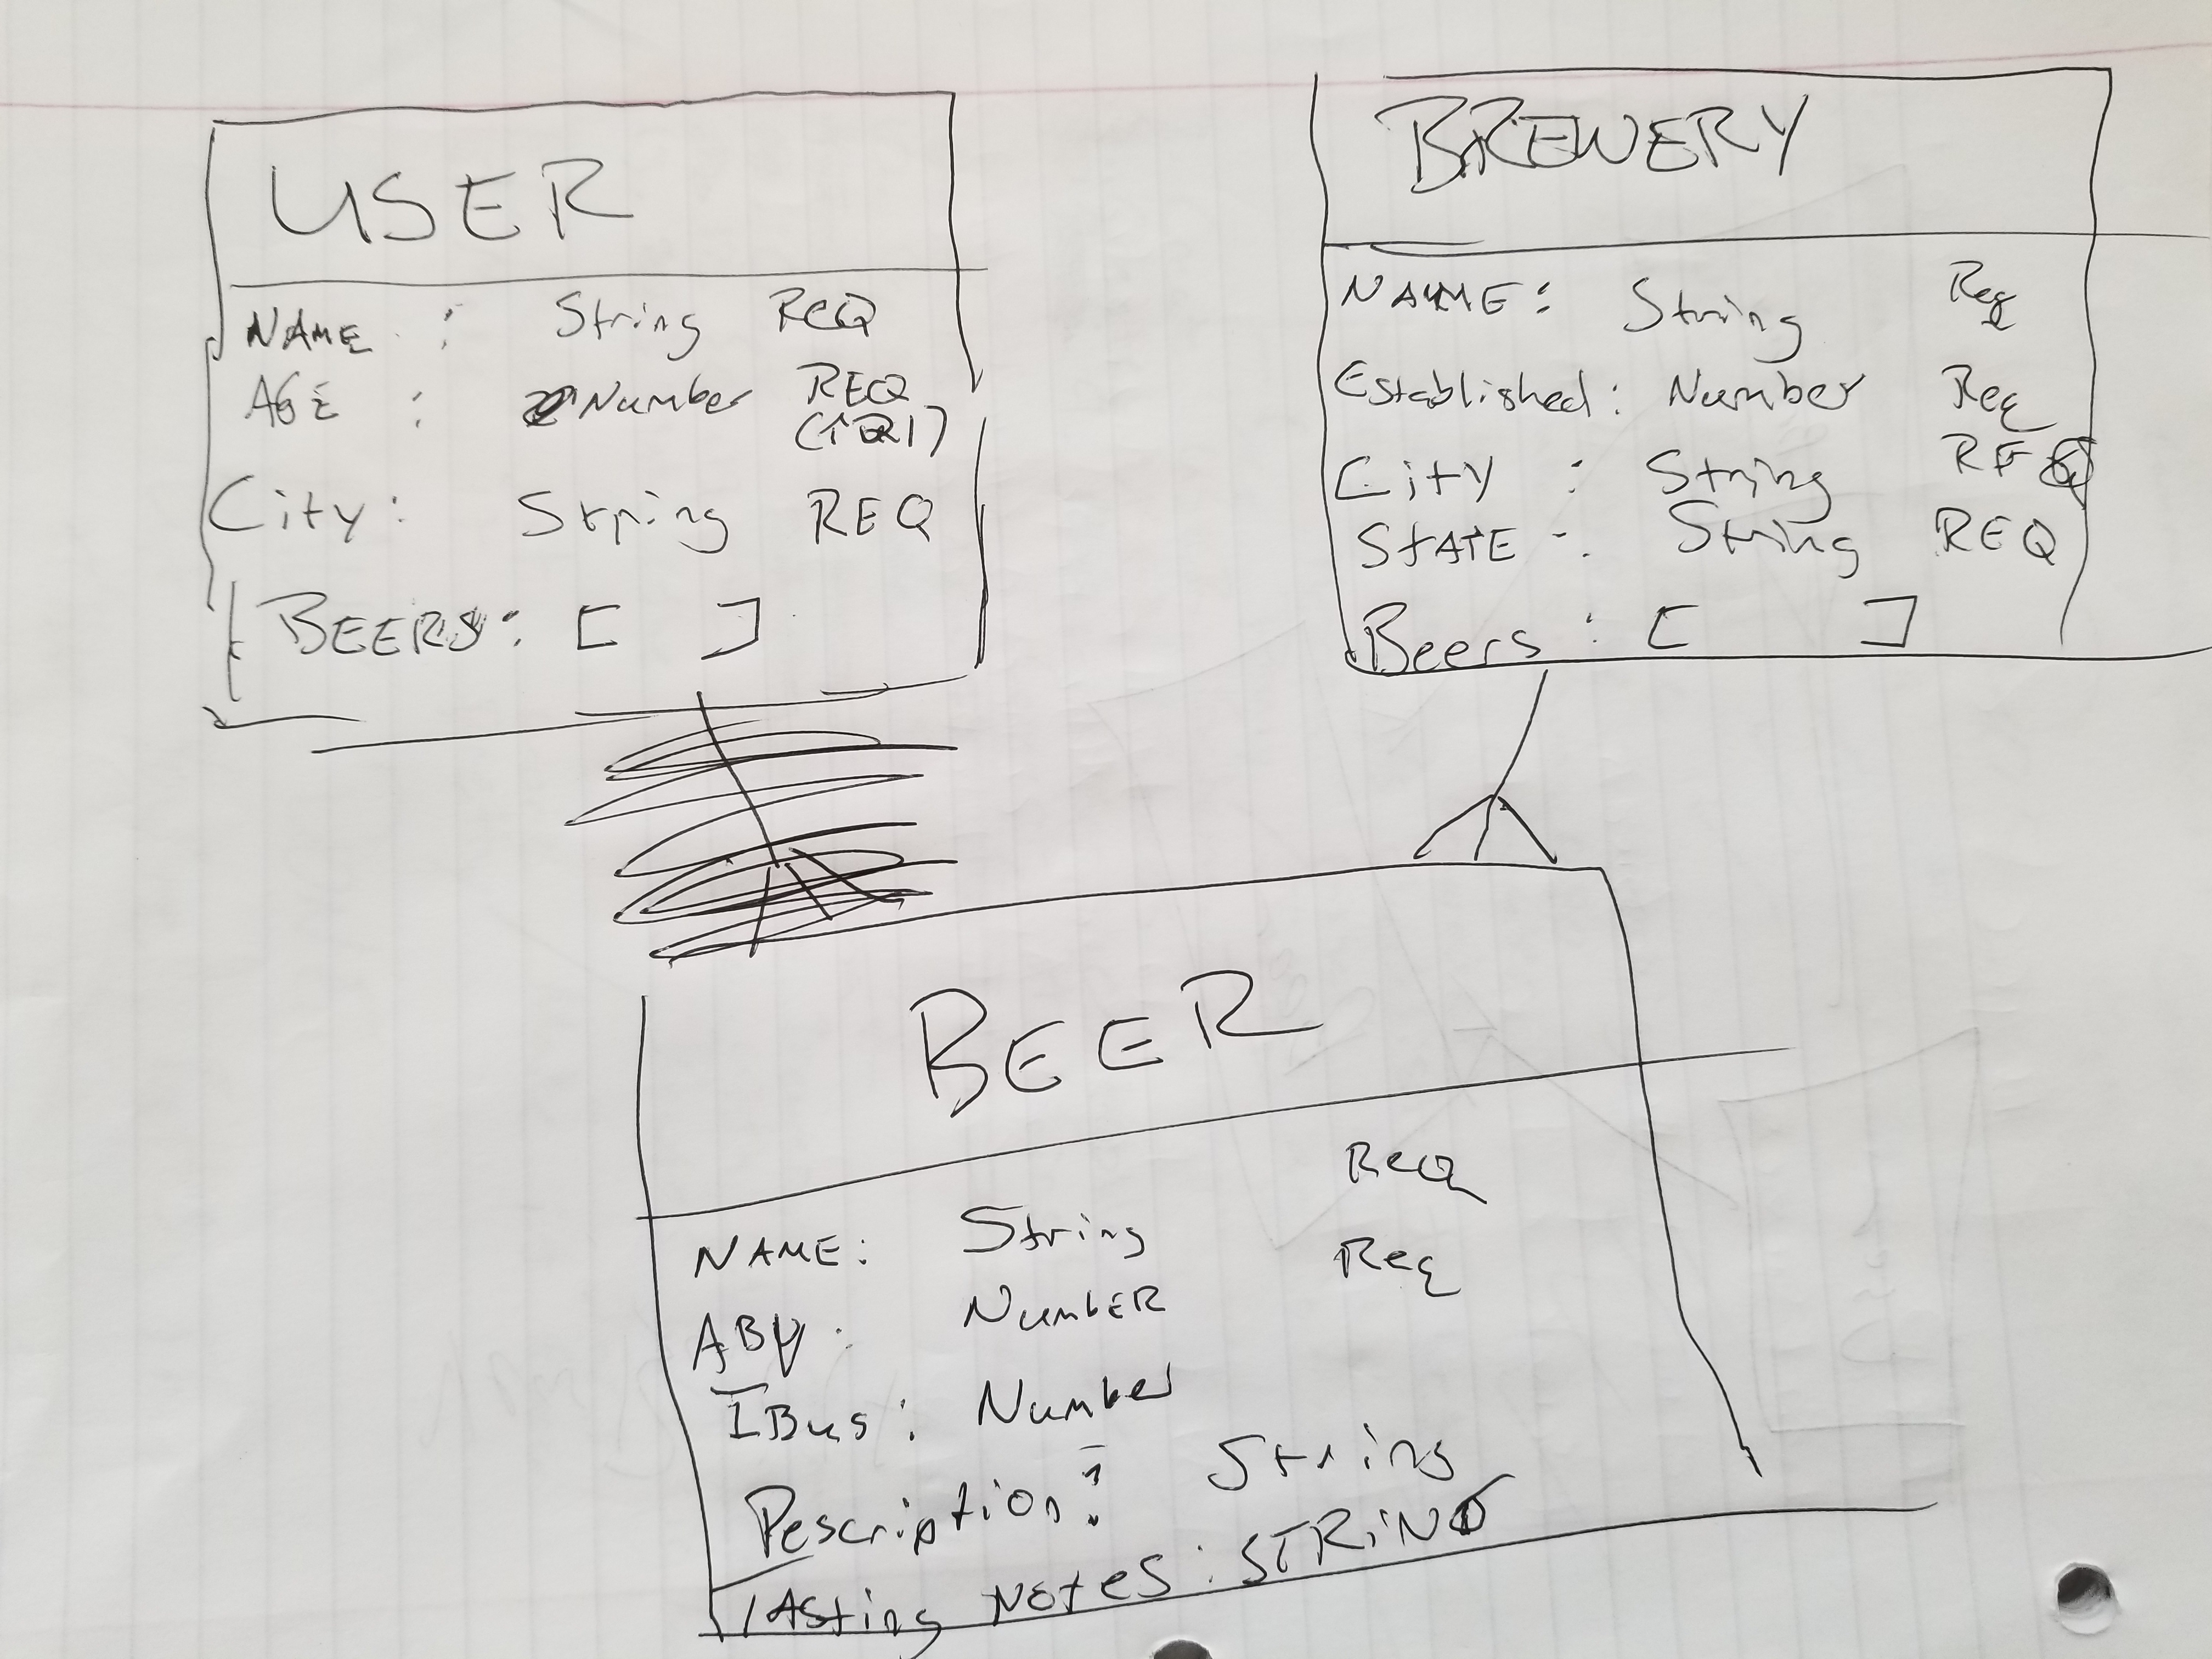 USER
NAME : String REQ
AGE : Number REQ
City: String REQ
BEERS: [ ]
BREWERY
NAME: String Req
Established: Number Req
City : String REQ
STATE : String REQ
Beers : [ ]
BEER
NAME: String ReQ
ABV: NumbER Req
IBus: Number
Description: String
TAsting NoteS: STRiNG